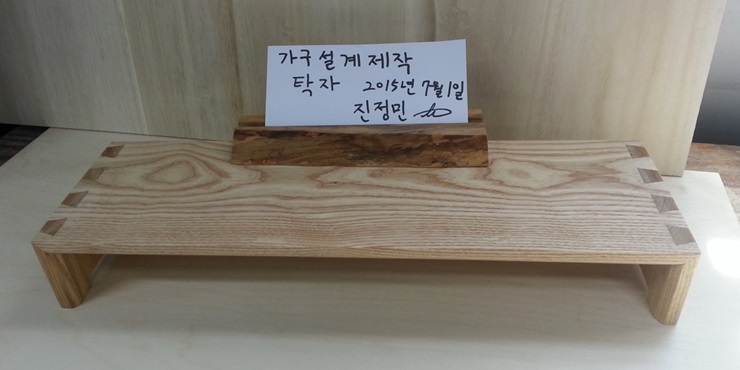 가구설계제작
탁자 2015년 7월 1일
진정민